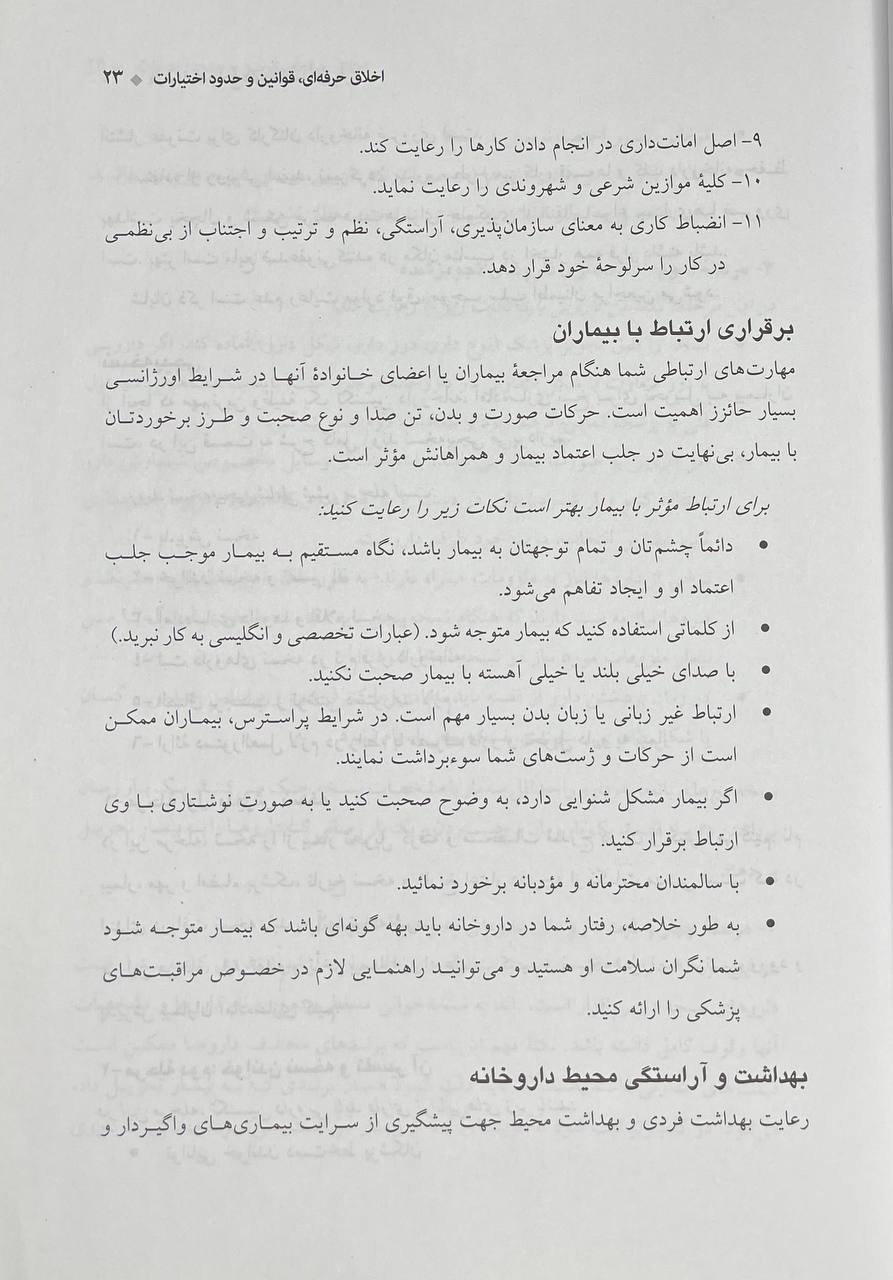 اخلاق حرفه‌ای، قوانین و حدود اختیارات ◆ ۲۳
۹- اصل امانت‌داری در انجام دادن کارها را رعایت کند.
۱۰- کلیهٔ موازین شرعی و شهروندی را رعایت نماید.
۱۱- انضباط کاری به معنای سازمان‌پذیری، آراستگی، نظم و ترتیب و اجتناب از بی‌نظمی
در کار را سرلوحهٔ خود قرار دهد.
برقراری ارتباط با بیماران
مهارت‌های ارتباطی شما هنگام مراجعهٔ بیماران یا اعضای خانوادهٔ آنها در شرایط اورژانسی
بسیار حائزز اهمیت است. حرکات صورت و بدن، تن صدا و نوع صحبت و طرز برخوردتان
با بیمار، بی‌نهایت در جلب اعتماد بیمار و همراهانش مؤثر است.
برای ارتباط مؤثر با بیمار بهتر است نکات زیر را رعایت کنید:
• دائماً چشم‌تان و تمام توجهتان به بیمار باشد، نگاه مستقیم به بیمار موجب جلب
اعتماد او و ایجاد تفاهم می‌شود.
• از کلماتی استفاده کنید که بیمار متوجه شود. (عبارات تخصصی و انگلیسی به کار نبرید.)
• با صدای خیلی بلند یا خیلی آهسته با بیمار صحبت نکنید.
• ارتباط غیر زبانی یا زبان بدن بسیار مهم است. در شرایط پراسترس، بیماران ممکن
است از حرکات و ژست‌های شما سوءبرداشت نمایند.
• اگر بیمار مشکل شنوایی دارد، به وضوح صحبت کنید یا به صورت نوشتاری با وی
ارتباط برقرار کنید.
• با سالمندان محترمانه و مؤدبانه برخورد نمائید.
• به طور خلاصه، رفتار شما در داروخانه باید بهه گونه‌ای باشد که بیمار متوجه شود
شما نگران سلامت او هستید و می‌توانید راهنمایی لازم در خصوص مراقبت‌های
پزشکی را ارائه کنید.
بهداشت و آراستگی محیط داروخانه
رعایت بهداشت فردی و بهداشت محیط جهت پیشگیری از سرایت بیماری‌های واگیردار و